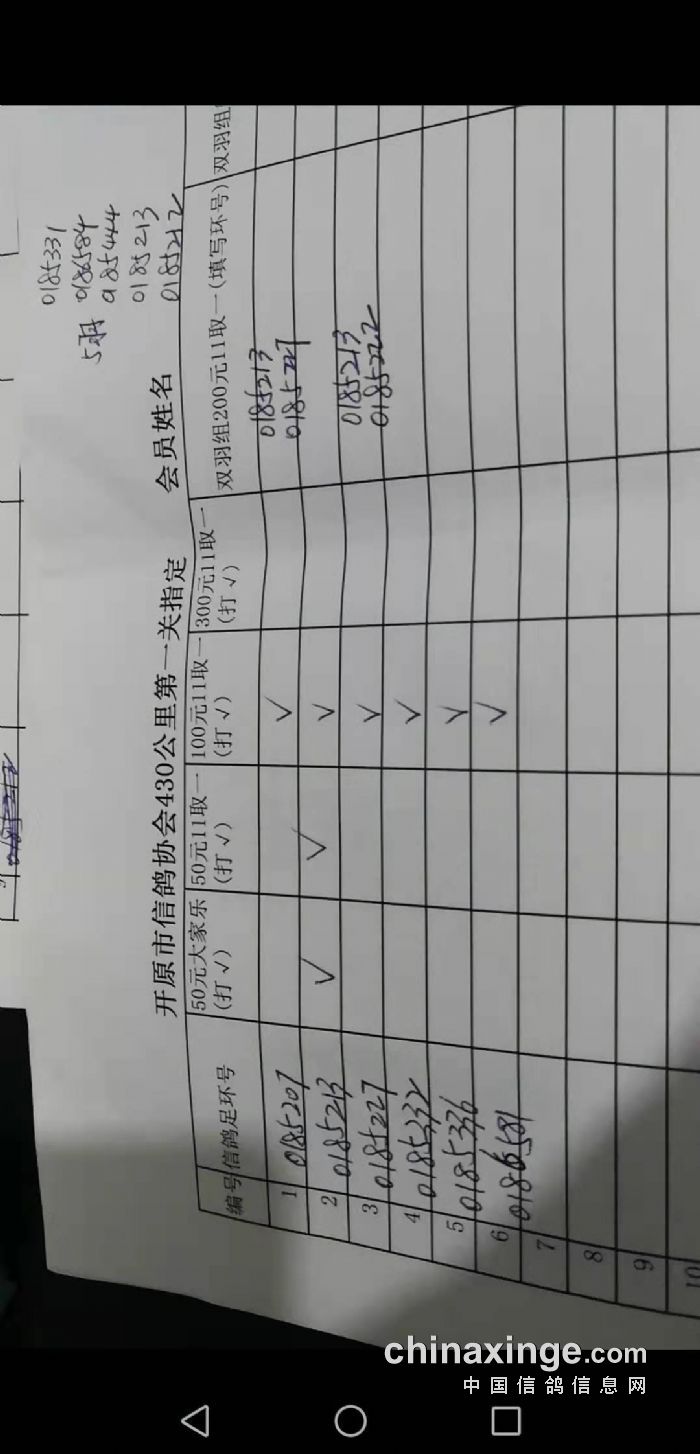 0185331
5羽 0186584
0185444
0185213
0185212
开原市信鸽协会430公里第一关指定 会员姓名
编号 信鸽足环号 50元大家乐(打√) 50元11取一(打√) 100元11取一(打√) 300元11取一(打√) 双羽组200元11取一(填写环号) 双羽组
1 0185207 √ 0185213
0185227
2 0185213 √ √ √
3 0185227 √ 0185213
0185222
4 0185332 √
5 0185336 √
6 0186581 √
7
8
9
10
chinaxinge.com
中国信鸽信息网